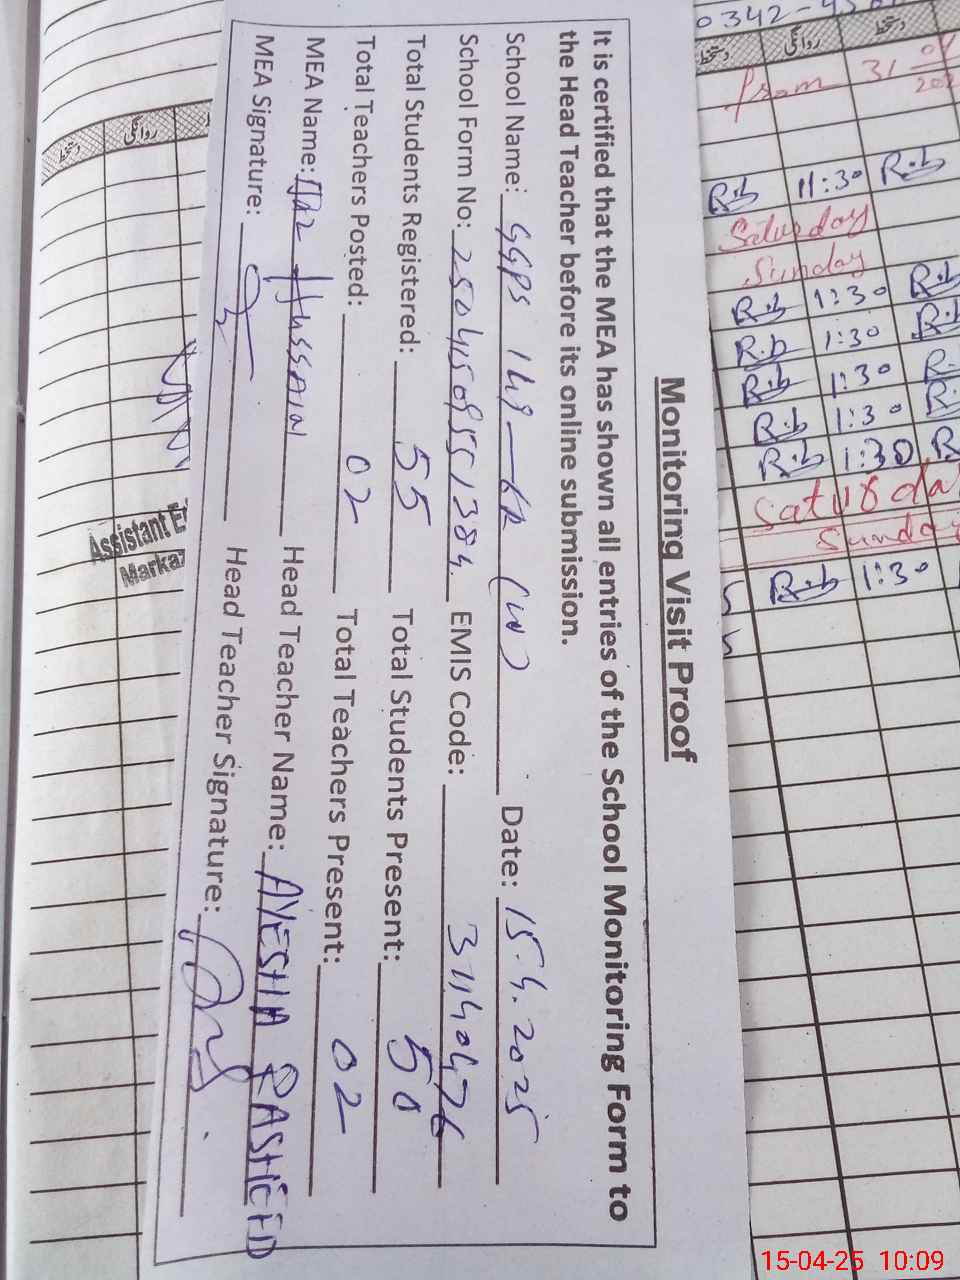 Monitoring Visit Proof
It is certified that the MEA has shown all entries of the School Monitoring Form to
the Head Teacher before its online submission.
School Name: GGPS 149-ER (W) Date: 15.4.2025
School Form No: EMIS Code: 31140476
Total Students Registered: 55 Total Students Present: 50
Total Teachers Posted: 02 Total Teachers Present: 02
MEA Name: Hussain Head Teacher Name: AYESHA RASHEED
MEA Signature: Head Teacher Signature:
0342-
دستخط روانگی دستخط
from 31
R.b 11:30 R.b
Saturday
Sunday
R.b 1:30 R.b
R.b 1:30 R.b
R.b 1:30 R.
R.b 1:30 R.
R.b 1:30 R
Saturda
Sunday
R.b 1:30
روانگی دستخط
Assistant E
Markaz
15-04-25 10:09